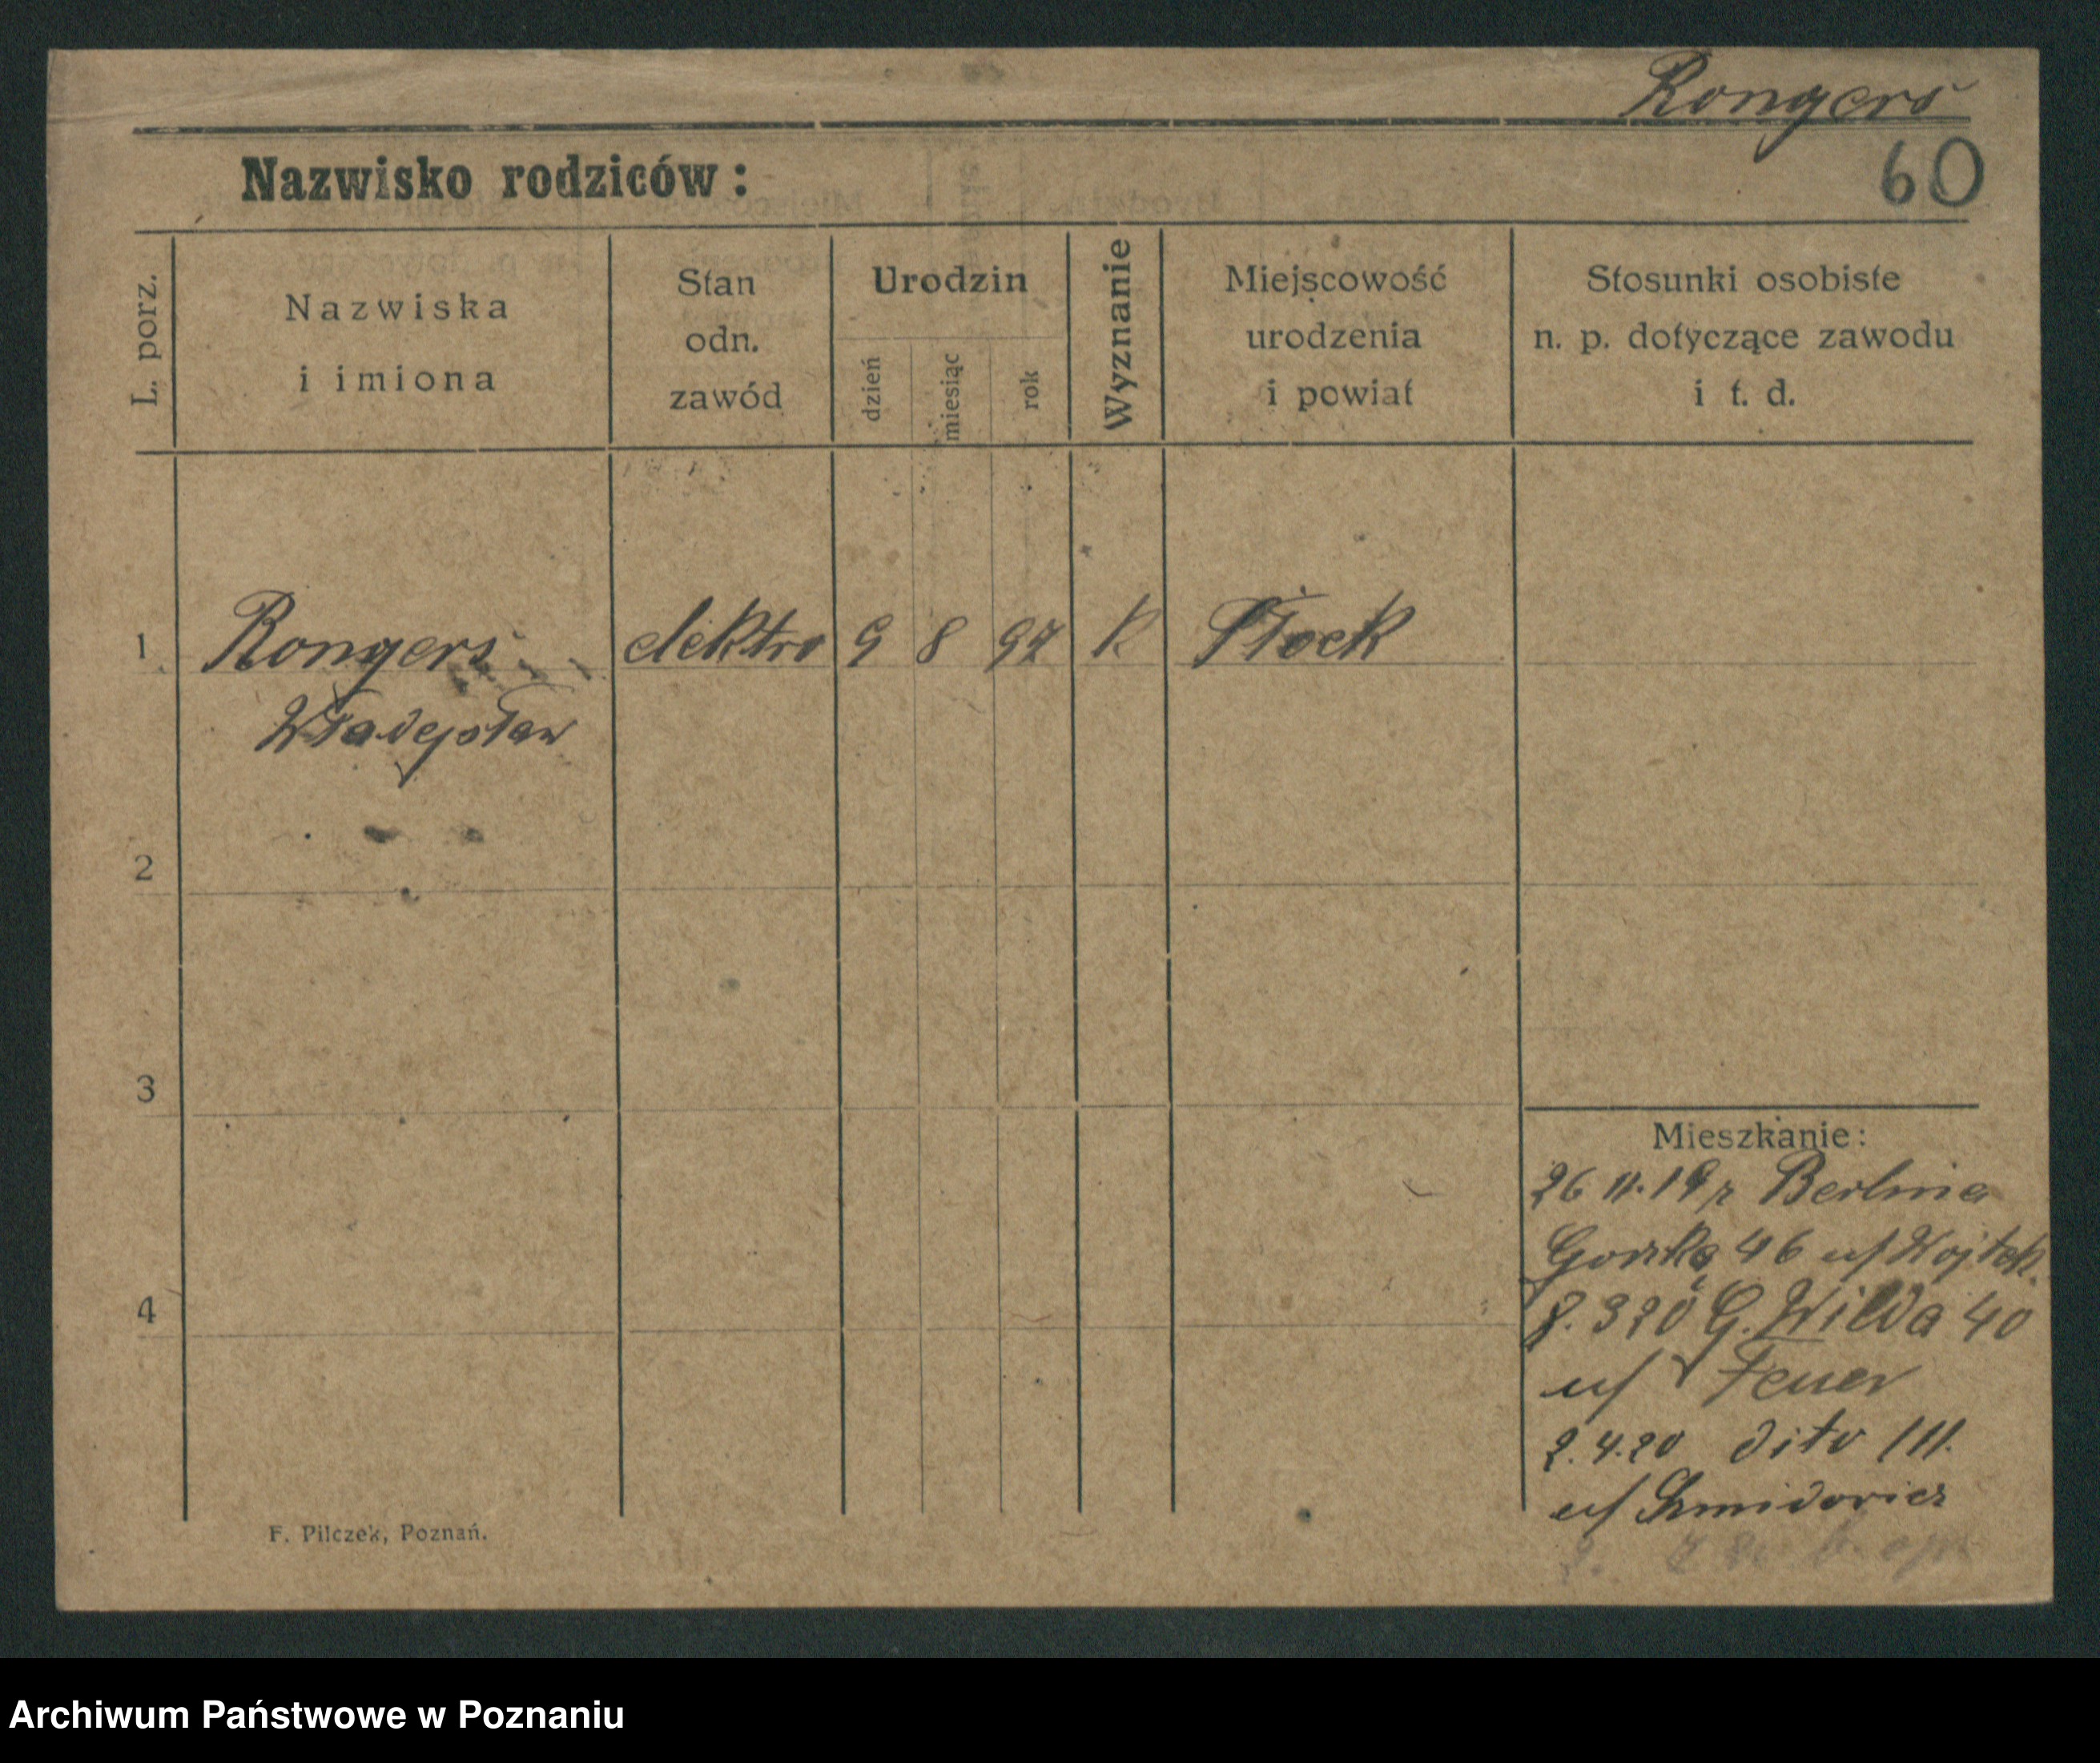 Rongers
60
Nazwisko rodziców:
L. porz.
Nazwiska
i imiona
Stan
odn.
zawód
Urodzin
dzień
miesiąc
rok
Wyznanie
Miejscowość
urodzenia
i powiat
Stosunki osobiste
n. p. dotyczące zawodu
i t. d.
1 Rongers elektro 9 8 97 K Płock
Władysław
2
3
4
Mieszkanie:
26 11. 19 r Berlina
46 u/ Wojtek.
G. Wilda 40
u/ Feuer
2.4.20 dito III.
u/
F. Pilczek, Poznań.
Archiwum Państwowe w Poznaniu